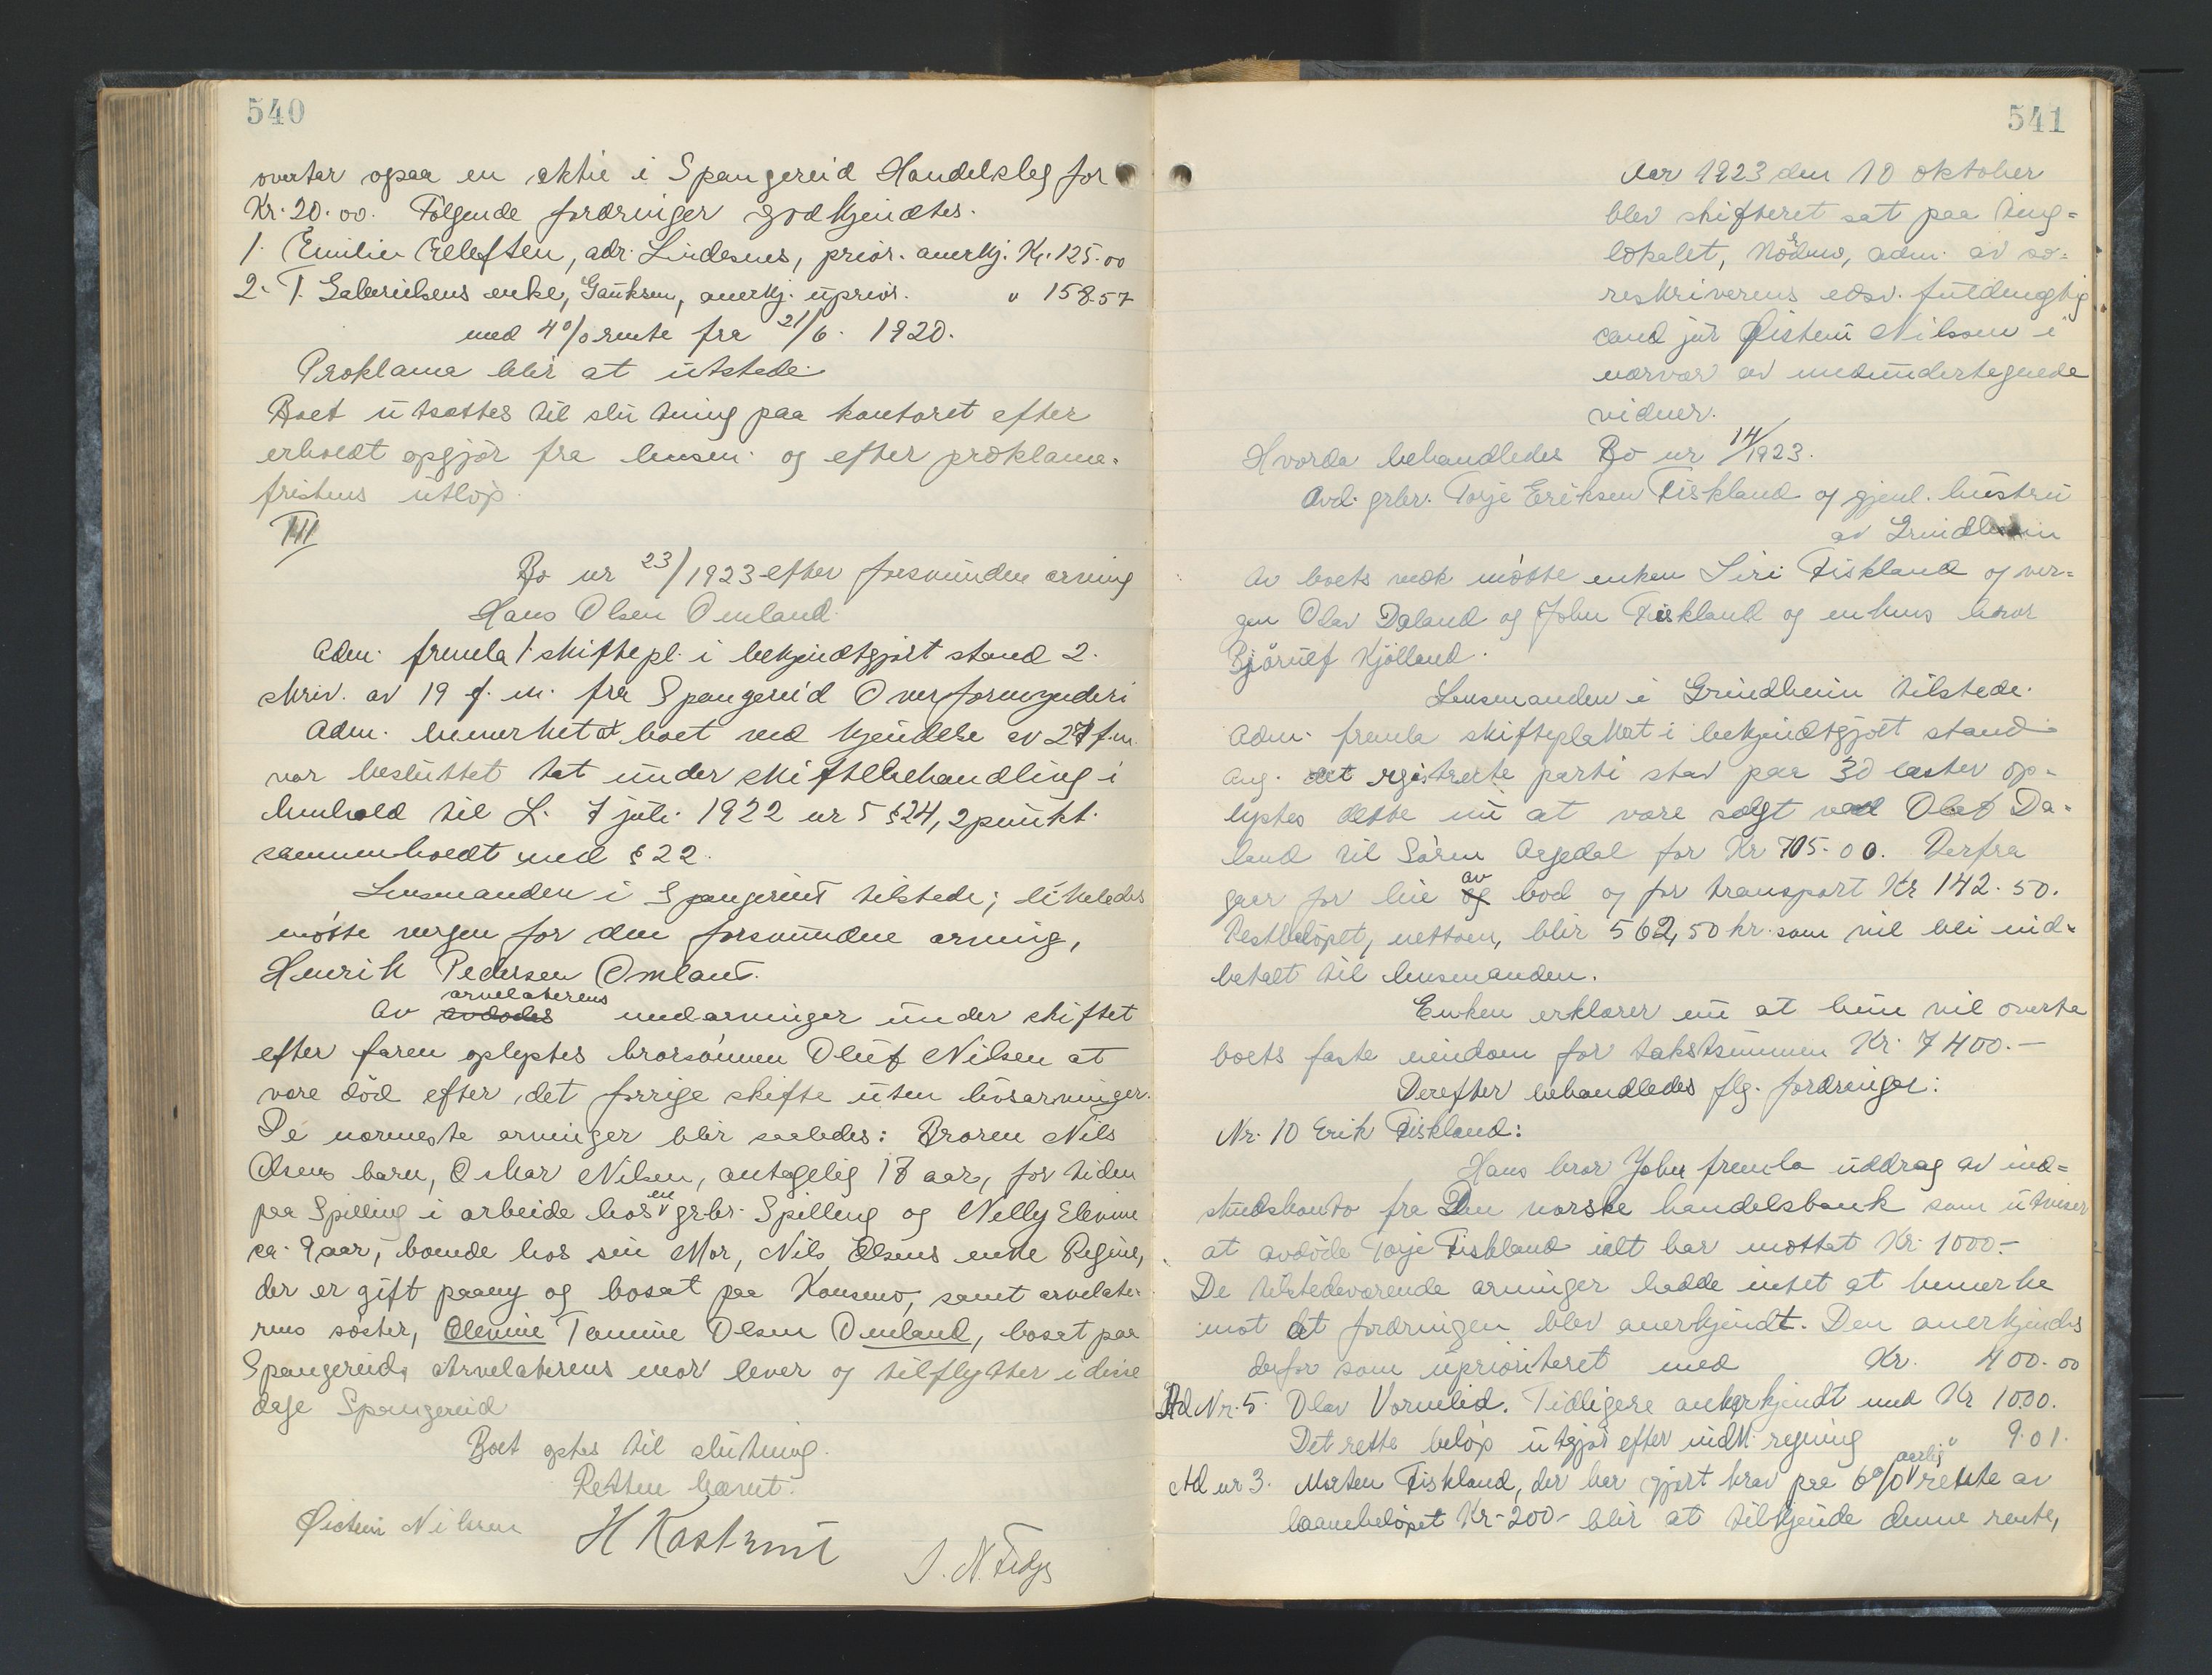 540
overtar ogsaa en aktie i Spangereid Handelslag for
Kr. 20.00. Følgende fordringer godkjendtes.
1. Emilie Ellefsen, adr. Lindesnes, prior. anerkj. Kr. 125.00
2. T. Gabrielsens enke, anerkj. uprior. " 158.57
med 4% rente fra 21/6. 1920.
Proklama blir at utstede.
Boet utsættes til slutning paa kontoret efter
erholdt opgjør fra lensm. og efter proklama-
fristens utløp.
III
Bo nr 23/1923 efter forsvunden arving
Hans Olsen Omland.
Adm. fremla 1. skiftepl. i bekjendtgjort stand 2.
skriv. av 19 f. m. fra Spangereid Overformynderi
Adm. bemerket at boet ved kjendelse av 27 f.m.
var besluttet tat under skiftebehandling i
henhold til L. 7 juli 1922 nr 5 § 24, 2 punkt.
sammenholdt med § 22.
Lensmanden i Spangereid tilstede; likeledes
møtte vergen for den forsvundne arving,
Henrik Pedersen Omland.
arvelaterens
Av avdødes medarvinger under skiftet
efter faren oplystes brorsønnen Oluf Nilsen at
være død efter det forrige skifte uten livsarvinger.
De nærmeste arvinger blir saaledes: Broren Nils
Olsens barn, Oskar Nilsen, antagelig 18 aar, for tiden
paa Spilling i arbeide hos en grbr. Spilling og Nelly Elenine
ca. 9 aar, boende hos sin Mor, Nils Olsens enke Regine,
der er gift paany og bosat paa Konsmo, samt arvelate-
rens søster, Elenine Tomine Olsen Omland, bosat paa
Spangereid. Arvelaterens mor lever og tilflytter i disse
dage Spangereid
Boet optas til slutning.
Retten hævet.
Øistein Nilssen H Kastrud
541
Aar 1923 den 10 oktober
blev skifteret sat paa ting-
lokalet, adm. av so-
reskriverens edsv. fuldmægtig
cand jur Øistein Nilssen i
nærvær av medundertegnede
vidner.
Hvorda behandledes Bo nr 14/1923.
Avd. grbr. Torje Eriksen Fiskland og gjenl. hustru
av Grindheim
Av boets vedk møtte enken Siri Fiskland og ver-
gen Olav Daland og John Fiskland og enkens bror
Bjørulf Kjølland.
Lensmanden i Grindheim tilstede.
Adm. fremla skifteplakat i bekjendtgjort stand
Ang. det registrerte parti stav paa 30 lester op-
lystes dette nu at være solgt ved Olav Da-
land til Søren Aagedal for Kr 705.00. Derfra
gaar for leie av bod og for transport Kr 142.50.
Restbeløpet, nettoen, blir 562,50 kr. som vil bli ind-
betalt til lensmanden.
Enken erklærer nu at hun vil overta
boets faste eiendom for takstsummen Kr. 7400.—
Derefter behandledes flg. fordringer:
Nr. 10 Erik Fiskland:
Hans bror John fremla uddrag av ind-
skudskonto fra Den norske handelsbank som utviser
at avdøde Torje Fiskland ialt har mottat Kr. 1000.-
De tilstedeværende arvinger hadde intet at bemerke
mot at fordringen blev anerkjendt. Den anerkjendes
derfor som uprioriteret med Kr. 400.00
Ad Nr. 5. Olav Vormelid. Tidligere anerkjendt med Kr 10.00.
Det rette beløp utgjør efter indk. regning " 9.01.
Ad nr 3. Morten Fiskland, der har gjort krav paa 6% aarlig rente av
laanebeløpet Kr-200- blir at tilkjende denne rente,